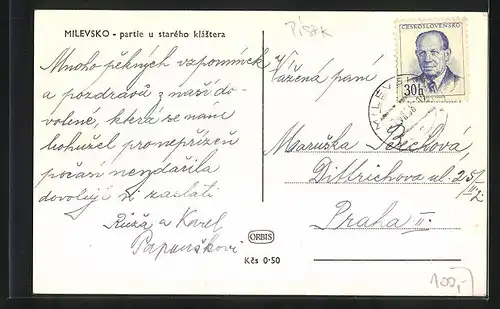 MILEVSKO - partie u starého kláštera
PÍSEK
Mnoho pěkných vzpomínek
a pozdravů z naší do-
volené, která se nám
bohužel pro nepřízeň
počasí nevydařila
dovolují si zaslati
Růža a Karel
Papouškovi
ORBIS
Kčs 0·50
ČESKOSLOVENSKO
30h
MILEV
Vážená paní
Maruška
Dittrichova ul. 25/
Praha II.
100,-